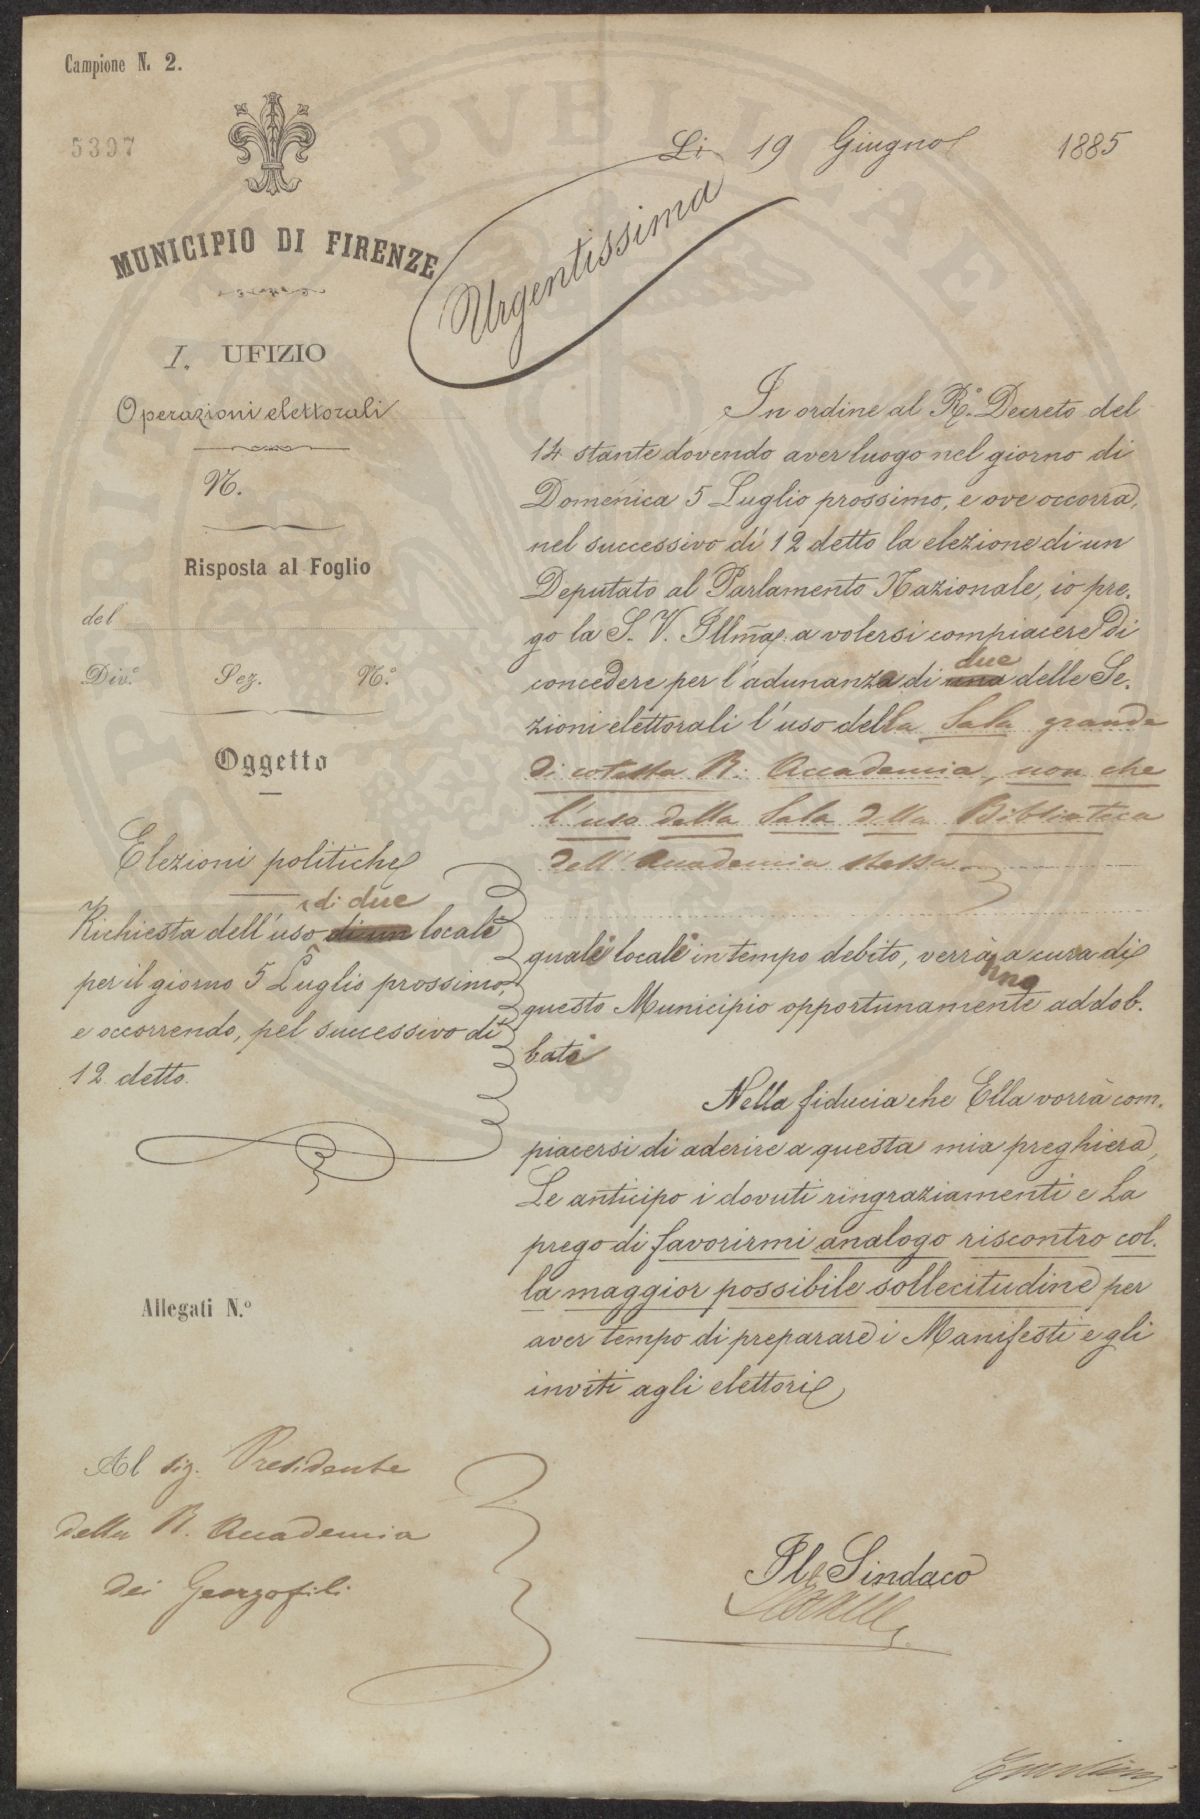 Campione N. 2.
5397
MUNICIPIO DI FIRENZE
I. UFIZIO
Operazioni elettorali
N.
Risposta al Foglio
del
Div.e Sez. N.o
Oggetto
Elezioni politiche
di due
Richiesta dell'uso di un locali
per il giorno 5 Luglio prossimo,
e occorrendo, pel successivo dì
12 detto.
Allegati N.o
Al sig. Presidente
della R. Accademia
dei Georgofili
Li 19 Giugno 1885
Urgentissima
In ordine al R.o Decreto del
14 stante dovendo aver luogo nel giorno di
Domenica 5 Luglio prossimo, e ove occorra,
nel successivo dì 12 detto la elezione di un
Deputato al Parlamento Nazionale, io pre-
go la S. V. Illma a volersi compiacere di
due
concedere per l'adunanza di una delle Se-
zioni elettorali l'uso della Sala grande
di cotesta R. Accademia, non che
l'uso della Sala della Biblioteca
dell'Accademia stessa
quali locali in tempo debito, verranno a cura di
questo Municipio opportunamente addob-
bati
Nella fiducia che Ella vorrà com-
piacersi di aderire a questa mia preghiera,
Le anticipo i dovuti ringraziamenti e La
prego di favorirmi analogo riscontro col-
la maggior possibile sollecitudine per
aver tempo di preparare i Manifesti e gli
inviti agli elettori
Il Sindaco